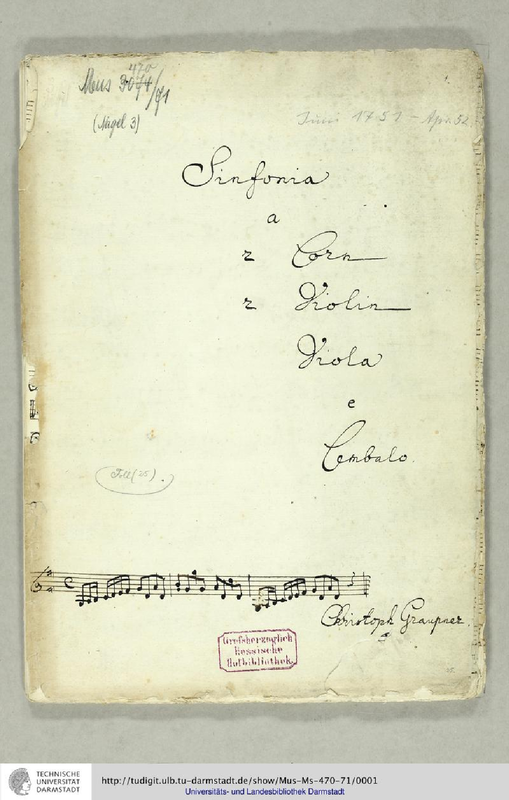 Mus 3074/71
470
(Nagel 3)
Juni 1751 - Apr. 52
Sinfonia
a
2 Corn
2 Violin
Viola
e
Cembalo.
Christoph Graupner.
Großherzoglich
Hessische
Hofbibliothek.
TECHNISCHE
UNIVERSITÄT
DARMSTADT
http://tudigit.ulb.tu-darmstadt.de/show/Mus-Ms-470-71/0001
Universitäts- und Landesbibliothek Darmstadt